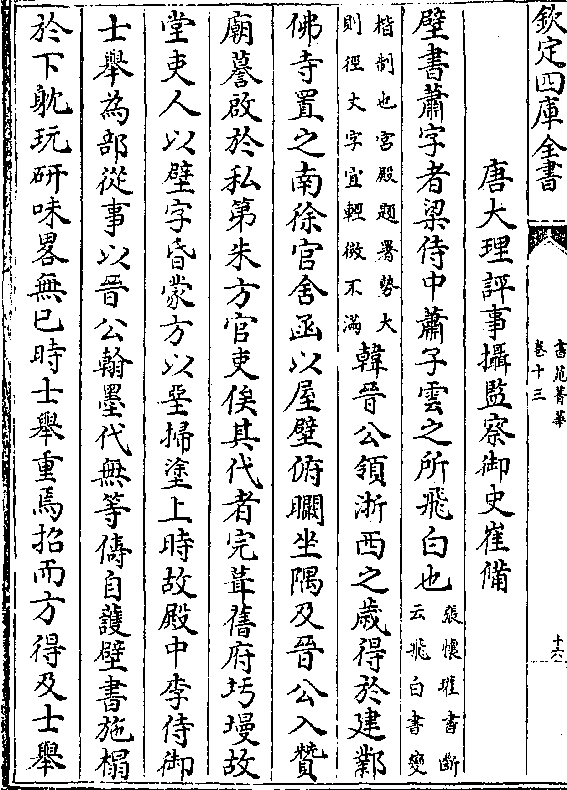 欽定四庫全書
書苑菁華
卷十三
十六
唐大理評事攝監察御史崔備
壁書蕭字者梁侍中蕭子雲之所飛白也張懷瓘書斷
云飛白書變
楷制也宮殿題署勢大
則徑丈字宜輕微不滿韓晉公領浙西之歲得於建鄴
佛寺置之南徐官舍函以屋壁俯瞯坐隅及晉公入贊
廟謩啟於私第朱方官吏俟其代者完葺舊府圬墁故
堂吏人以壁字昏蒙方以堊掃塗上時故殿中李侍御
士舉為部從事以晉公翰墨代無等儔自護壁書施榻
於下躭玩研味畧無已時士舉重焉招而方得及士舉